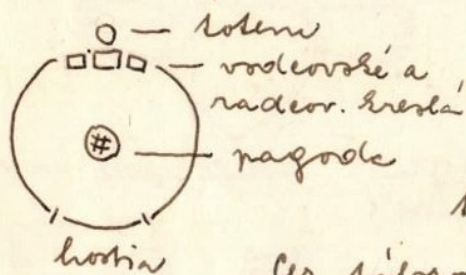 totem
vodcovské a
radcov. kreslá
pagoda
hostia